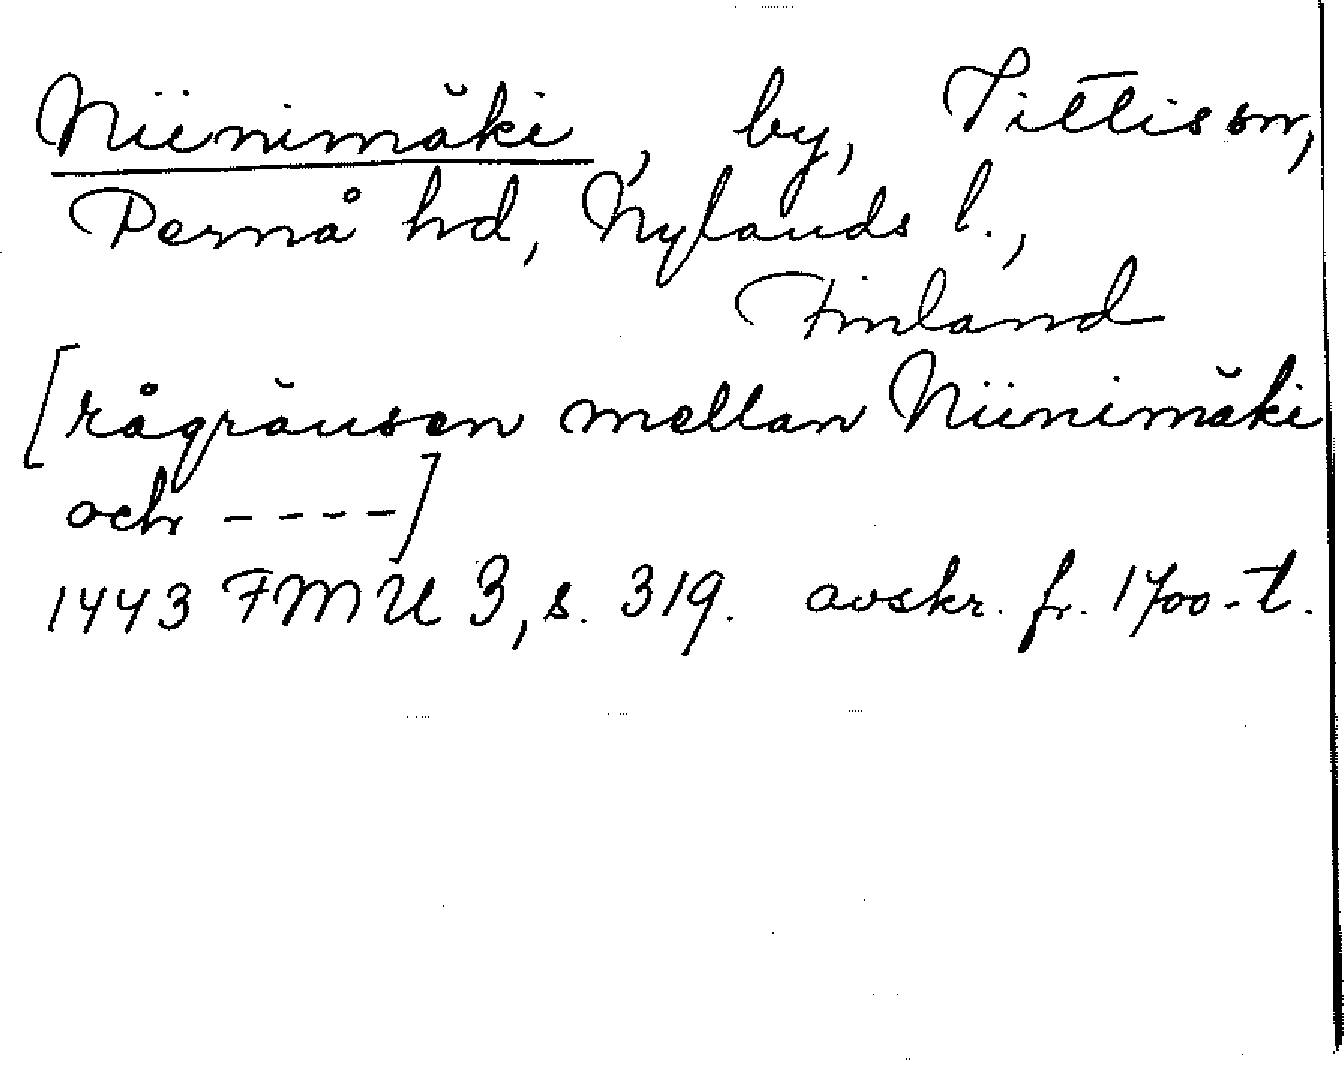 Niinimäki, by, Tittis sn,
Pernå hd, Nylands l.,
Finland
[rågränsen mellan Niinimäki
och ----]
1443 FMU 3, s. 319. avskr. fr. 1700-t.